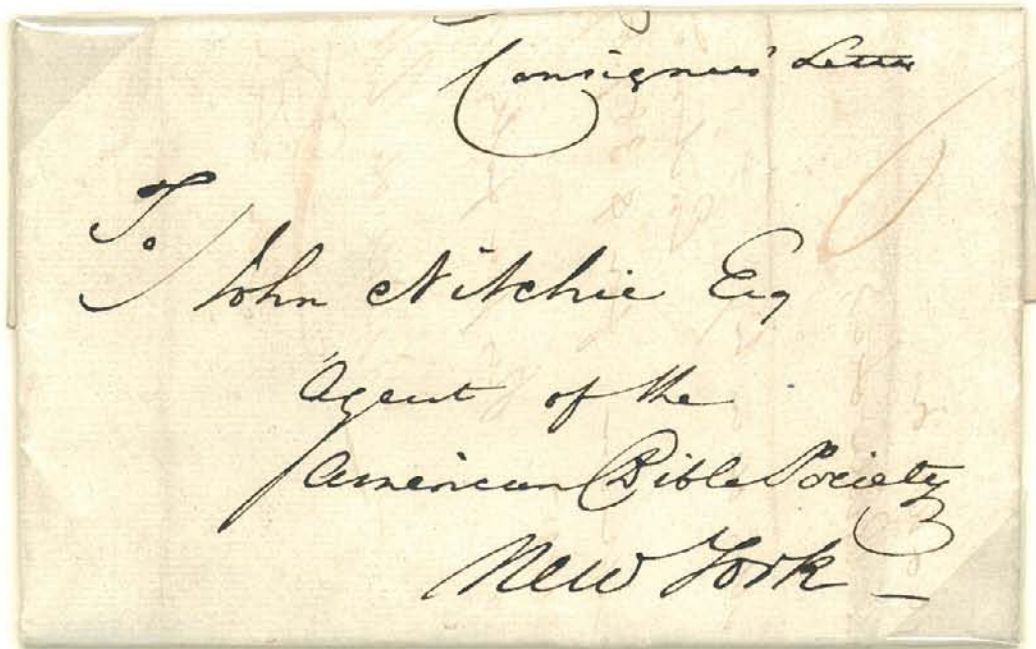 Consignees' Letter
To
John Nitchie Esq
Agent of the
American Bible Society
New York